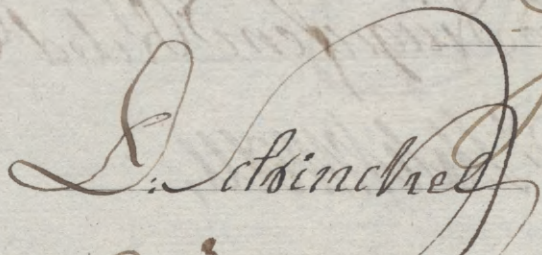 D: Schinckel